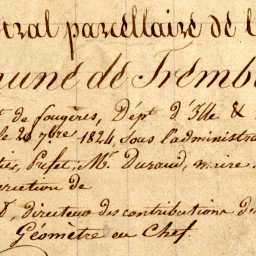 ral parcellaire de l
mune de Trembl
t de fougères, Dépt d'Ille &
le 20 7bre 1824, sous l'administra
Préfet, Mr Durand, maire
rection de
directeur des contributions d
Géomètre en Chef